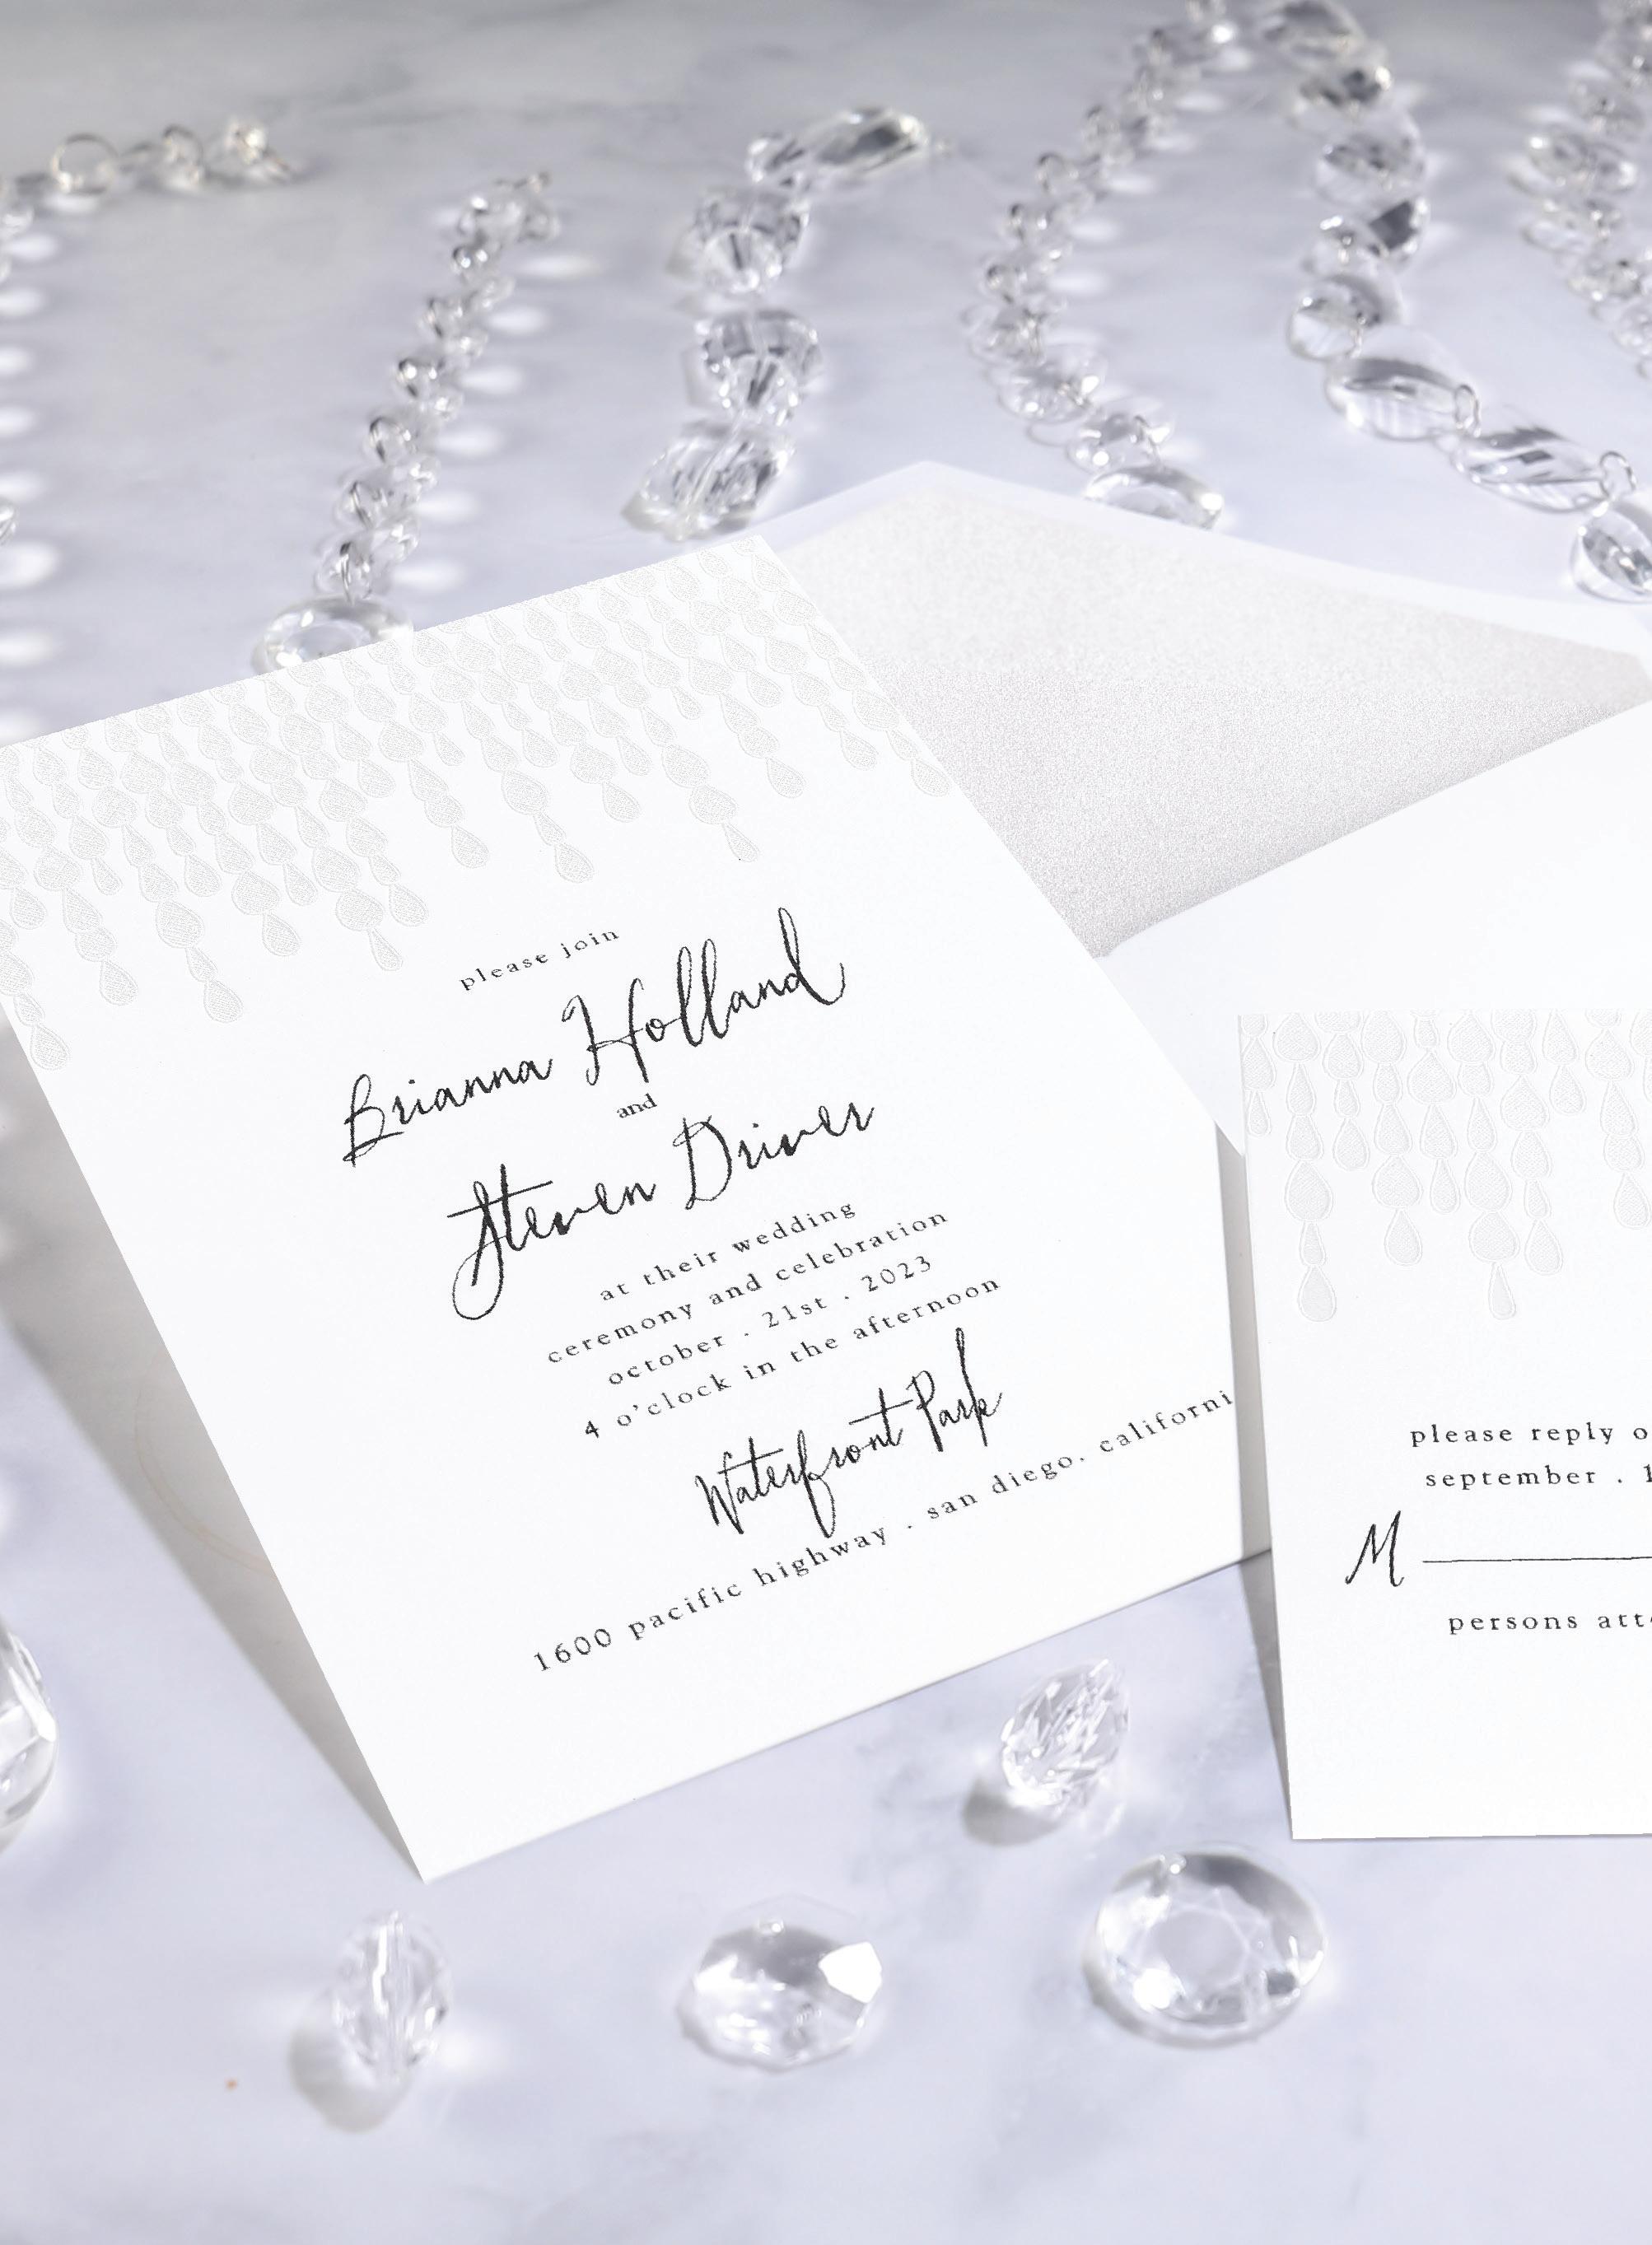 please join
Brianna Holland
and
Steven Driver
at their wedding
ceremony and celebration
october . 21st . 2023
4 o'clock in the afternoon
Waterfront Park
1600 pacific highway . san diego. californi
please reply o
september . 1
M
persons atte